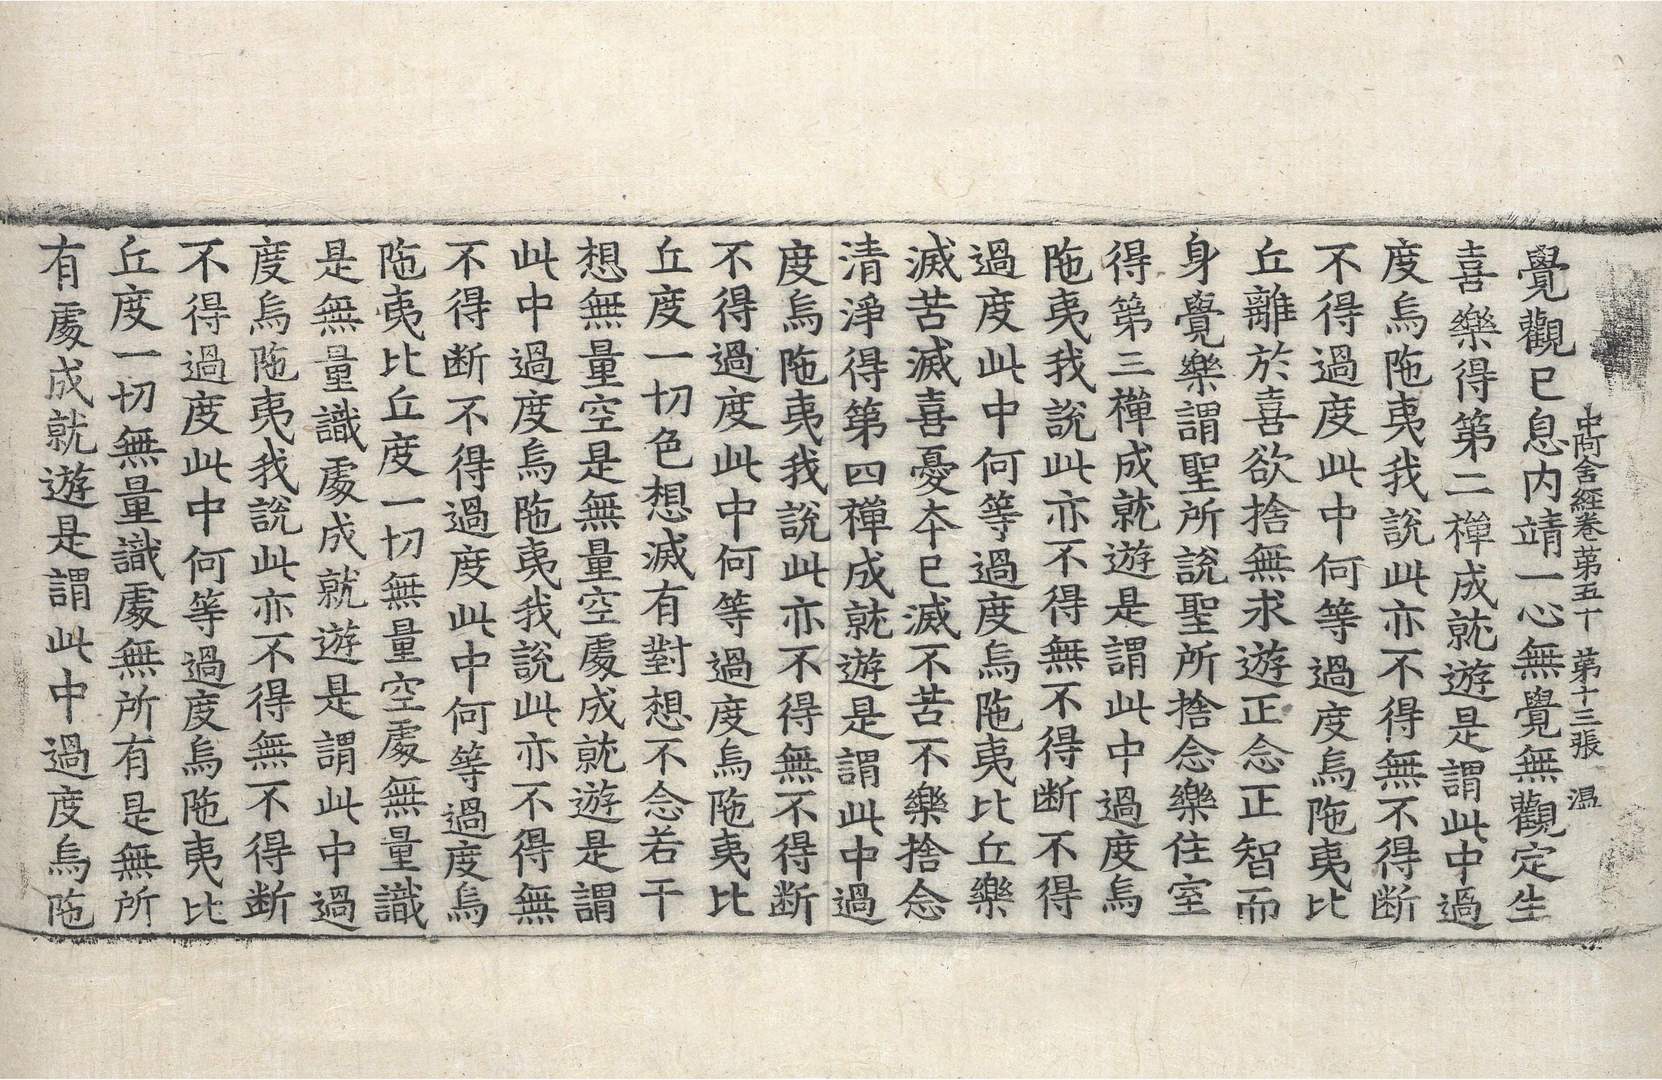 中阿含經卷第五十　第十三張　温
覺觀已息内靖一心無覺無觀定生
喜樂得第二禪成就遊是謂此中過
度烏陁夷我說此亦不得無不得断
不得過度此中何等過度烏陁夷比
丘離於喜欲捨無求遊正念正智而
身覺樂謂聖所說聖所捨念樂住室
得第三禪成就遊是謂此中過度烏
陁夷我說此亦不得無不得断不得
過度此中何等過度烏陁夷比丘樂
滅苦滅喜憂夲已滅不苦不樂捨念
清淨得第四禪成就遊是謂此中過
度烏陁夷我說此亦不得無不得断
不得過度此中何等過度烏陁夷比
丘度一切色想滅有對想不念若干
想無量空是無量空處成就遊是謂
此中過度烏陁夷我說此亦不得無
不得断不得過度此中何等過度烏
陁夷比丘度一切無量空處無量識
是無量識處成就遊是謂此中過
度烏陁夷我說此亦不得無不得断
不得過度此中何等過度烏陁夷比
丘度一切無量識處無所有是無所
有處成就遊是謂此中過度烏陁